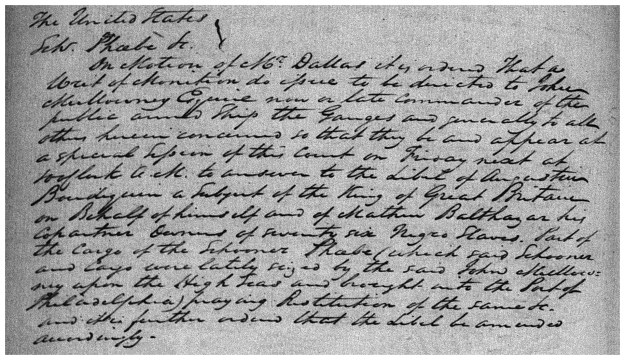 The United States
Schr. Phoebe &c.
On Motion of Mr. Dallas it is ordered That a
Writ of Monition do issue to be directed to John
Mullowney Esquire now or late Commander of the
public armed Ship the Ganges and generally to all
others herein concerned so that they be and appear at
a special Session of this Court on Friday next at
o'Clock A.M. to answer to the Libel of Augustin
a Subject of the King of Great Britain
on Behalf of himself and of Mathew Balthazar his
Copartner Owners of seventy six Negro Slaves. Part of
the Cargo of the Schooner Phoebe (which said Schooner
and Cargo were lately seized by the said John Mullow=
ney upon the High Seas and brought into the Port of
Philadelphia) praying Restitution of the same &c.
and it is further ordered that the Libel be amended
accordingly.